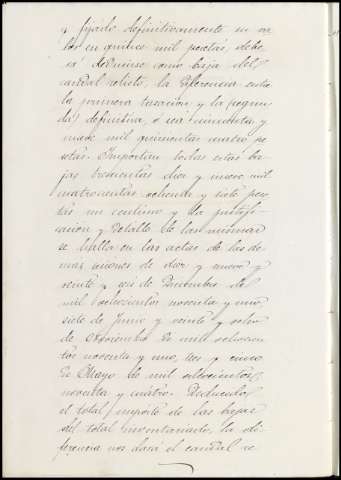 y fijado definitivamente su va
lor en quince mil pesetas, debe
rá deducirse como baja del
caudal relicto, la diferencia entre
la primera tasación y la segun
da definitiva, ó sea cincuenta y
nueve mil quinientas cuatro pe
setas. Importan todas estas ba
jas trescientas diez y nueve mil
cuatrocientas ochenta y siete pese
tas un centimo y la justifi-
cación y detalle de las mismas
se hallan en las actas de las de
mas uniones de diez y nueve y
veinte y seis de Diciembre de
mil ochocientos noventa y uno,
siete de Junio y veinte y ocho
de Noviembre de mil ochocien
tos noventa y uno, tres y cinco
de Mayo de mil ochocientos
noventa y cuatro. Deducido
el total importe de las bajas
del total inventariado, la di-
ferencia nos dará el caudal re